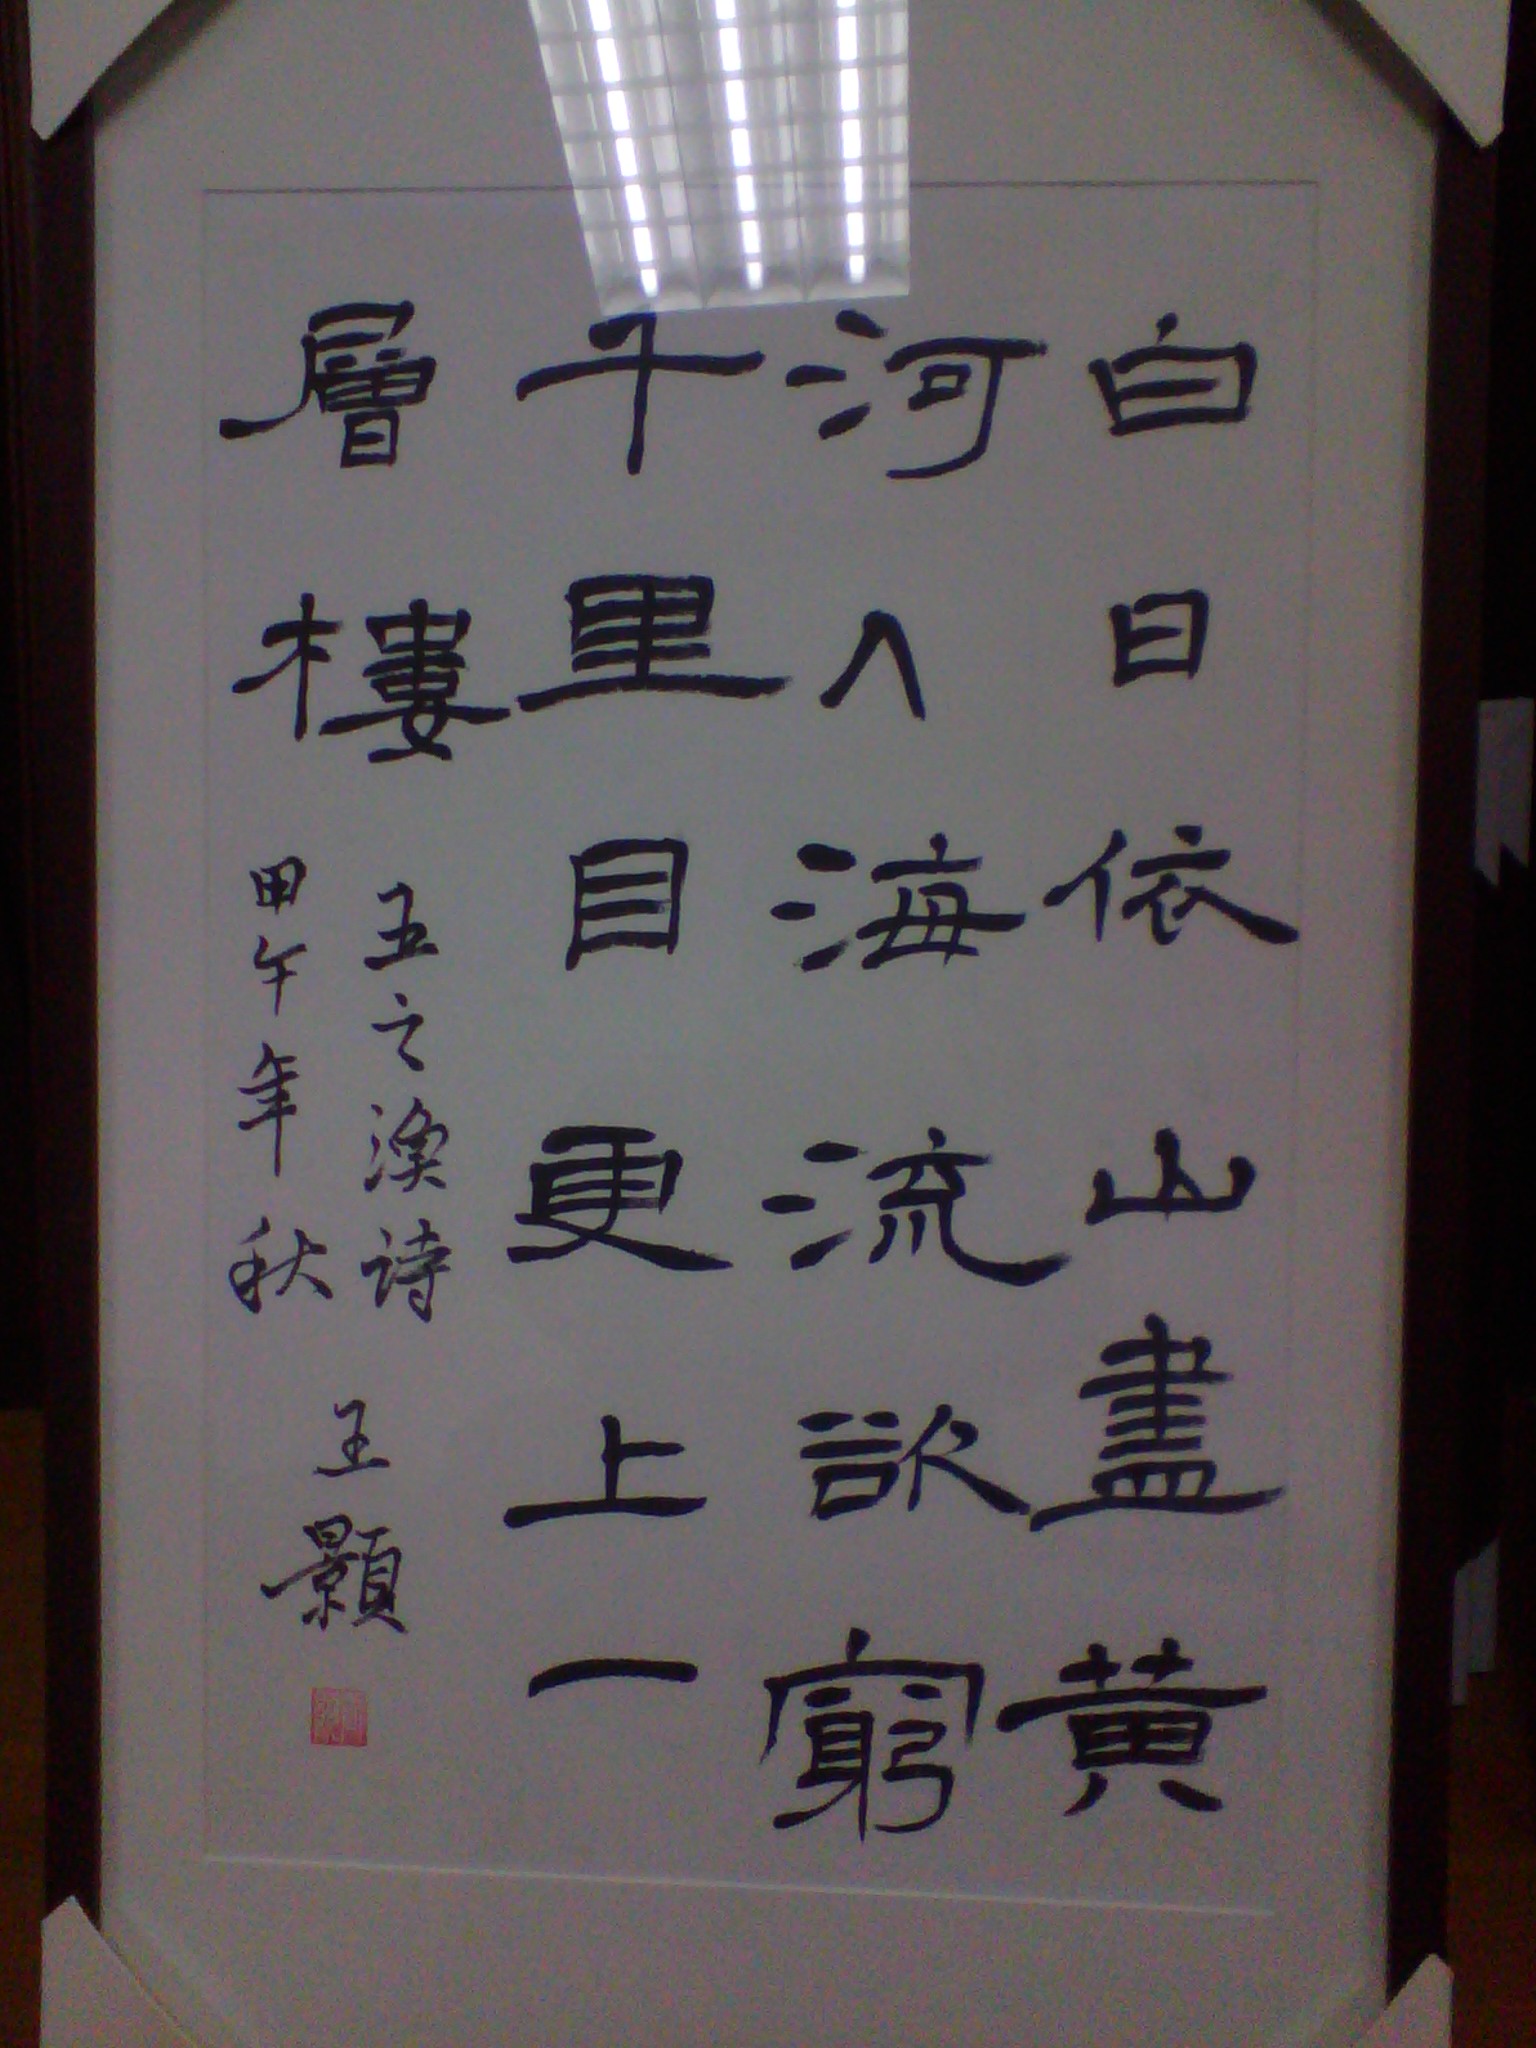 白日依山盡黃
河入海流欲窮
千里目更上一
層樓
王之渙诗
甲午年秋
王顥